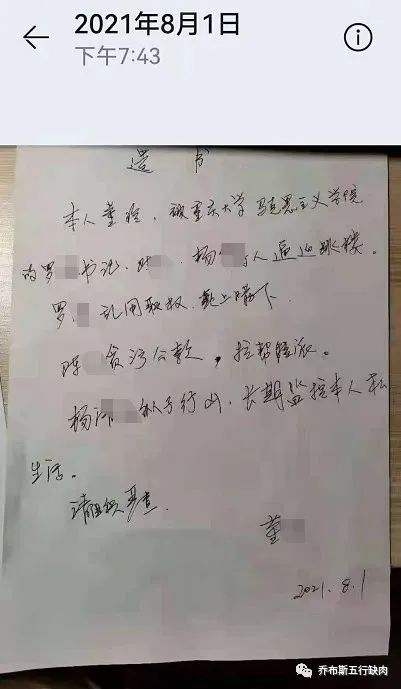 2021年8月1日
下午7:43
遗书
本人董 ，被重庆大学马克思主义学院
的罗 书记、陈 、杨 人逼迫跳楼。
罗 乱用职权，欺上瞒下
陈 贪污公款，拉帮结派。
杨 ，长期监控本人私
生活。
请组织严查．
董
2021．8．1
乔布斯五行缺肉